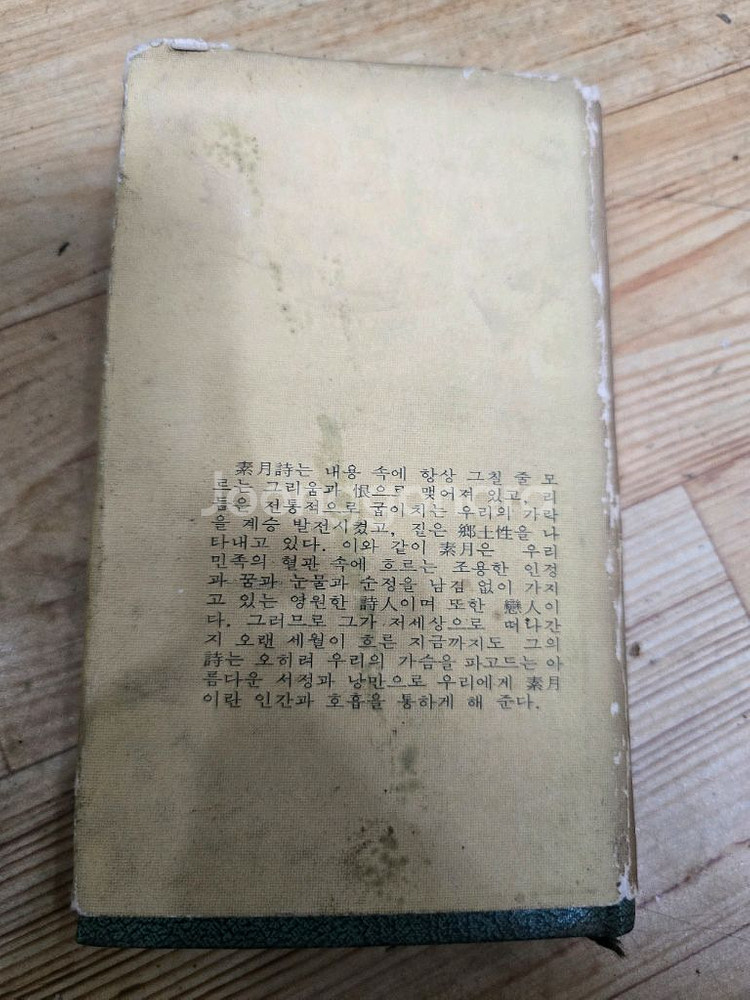 素月詩는 내용 속에 항상 그칠 줄 모
르는 그리움과 恨으로 맺어져 있고, 리
듬은 전통적으로 굽이치는 우리의 가락
을 계승 발전시켰고, 짙은 鄕土性을 나
타내고 있다. 이와 같이 素月은 우리
민족의 혈관 속에 흐르는 조용한 인정
과 꿈과 눈물과 순정을 남김 없이 가지
고 있는 영원한 詩人이며 또한 戀人이
다. 그러므로 그가 저세상으로 떠나간
지 오랜 세월이 흐른 지금까지도 그의
詩는 오히려 우리의 가슴을 파고드는 아
름다운 서정과 낭만으로 우리에게 素月
이란 인간과 호흡을 통하게 해 준다.